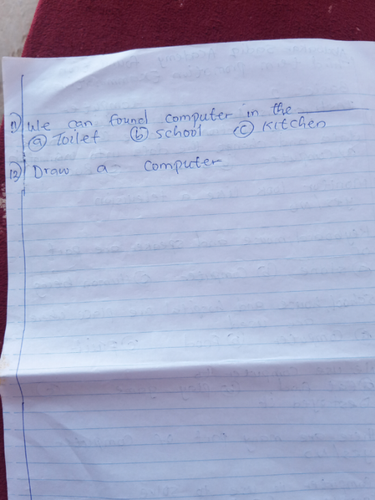 11) We can found computer in the ______
(a) Toilet (b) school (c) Kitchen
12) Draw a computer